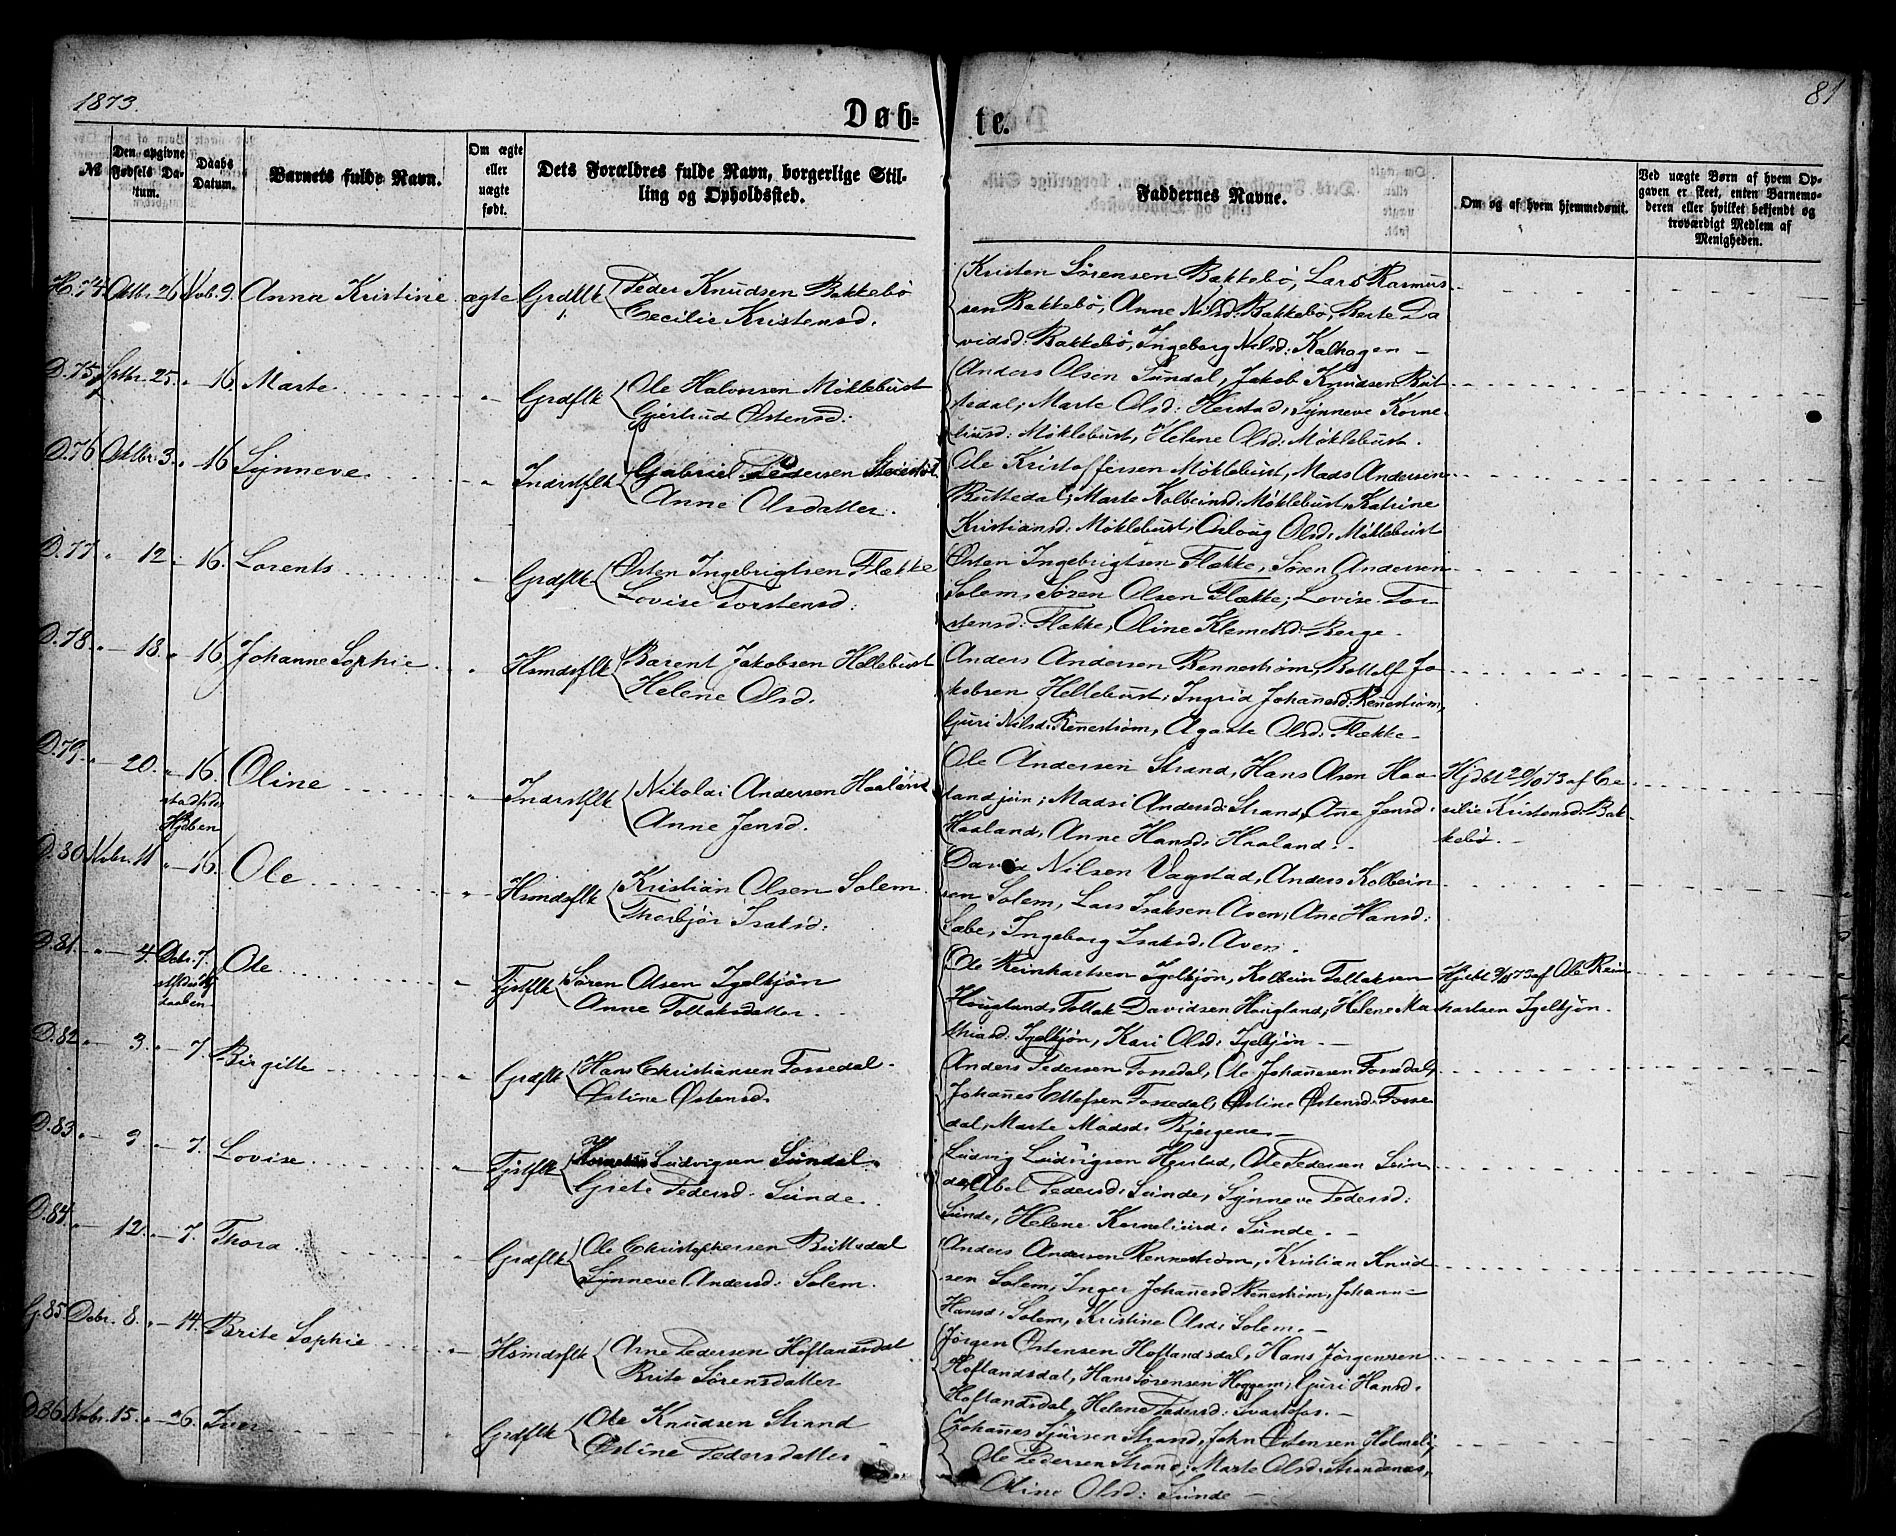 1873.
Døb=
te.
81
№
Den opgivne Fødsels Datum.
Daabs Datum.
Barnets fulde Navn.
Om ægte eller uægte født.
Dets Forældres fulde Navn, borgerlige Stilling og Opholdssted.
Faddernes Navne.
Om og af hvem hjemmedøbt.
Ved uægte Børn af hvem Opgaven er skeet, enten Barnemoderen eller hvilket bekjendt og troværdigt Medlem af Menigheden.
H.74. Oktbr. 26 Nvb. 9. Anna Kristine ægte Grdflk Peder Knudsen Bakkebø
Cecilie Kristensd.
Kristen Sörensen Bakkebö, Lars Rasmus-
sen Bakkebö, Anne Nilsd: Bakkebö, Berte Da
vidsd: Bakkebö, Ingeborg Nilsd: Kalhagen -
D.75 Sptbr. 25. " - 16 Marte " Grdflk Ole Halvorsen Møklebust
Gjertrud Østensd:
Anders Olsen Sundal, Jakob Knudsen But
tedal, Marte Olsd: Herstad, Synneve Korne-
liusd: Møklebust, Helene Olsd: Møklebust.
D.76 Oktbr. 3. " - 16 Synneve " Indrstflk Gabriel Pedersen
Anne Olsdatter.
Ole Kristoffersen Møklebust, Mads Andersen
Buttedal, Marte Kolbeinsd: Møklebust, Katrine
Kristiansd: Møklebust, Oslaug Olsd: Møklebust
D.77 " 12 - 16. Lorents " Grdflk Østen Ingebrigtsen Flække
Lovise Torstensd:
Østen Ingebrigtsen Flække, Sören Andersen
Solem, Sören Olsen Flække, Lovise Tor-
stensd: Flække, Oline Klemetsd: Berge.
D.78. " - 18. " 16 Johanne Sophie " Hsmdsflk Barent Jakobsen Hellebust
Helene Olsd.
Anders Andersen Rennestrøm, Bottolf Ja-
kobsen Hellebust, Ingrid Johansd: Rennestrøm,
Guri Nilsd: Rennestrøm, Agaate Olsd: Flække -
D.79 " 20. " - 16. Oline " Indrstflk Nikolai Andersen Haaland
stadfæst
Hjdben
Anne Jensd.
Ole Andersen Strand, Hans Olsen Haa-
land, Madsi Andersd: Strand, Ane Jensd:
Haaland, Anne Hansd: Haaland. -
Hjdbt 20/10 73 af Ce-
cilie Kristensd: Bak-
kebö. -
D.80 Nvbr. 11 " - 16. Ole " Hsmdsflk Kristian Olsen Solem
Thorbjör Isaksd:
David Nilsen Vagstad, Anders Kolbein
sen Solem, Lars Isaksen Aven, Ane Hansd:
Sæbe, Ingeborg Isaksd: Aven.
D.81. " - 4. Debr. 7. Ole " Tjstflk Sören Olsen Igelkjön
Anne Foltaksdatter.
Ole Reinhartsen Igelkjön, Kolbein Foltaksen
Hougland, Foltak Davidsen Hougland, Helene Ma
thiasd: Igelkjön, Kari Olsd: Igelkjön. -
Hjdbt 9/11 73 af Ole Rein
hartsen Igelkjön.
D.82 " - 3. " - 7 Birgitte " Grdflk Hans Christiansen Fossedal
Østine Østensd.
Anders Pedersen Fossedal, Ole Johanesen Fossdal,
Johannes Ellefsen Fossedal, Østine Østensd: Fosse
dal, Marte Madsd: Bjergene. -
D.83 " - 9. - 7. Lovise " Tjstflk Ludvigsen Sundal.
Grete Pedersd. Sunde.
Ludvig Ludvigsen Herstad, Ole Pedersen Sun
dal, Abel Pedersd: Sunde, Synneve Pedersd:
Sunde, Helene Korneliusd: Sunde. -
D.84. " 12. " - 7. Thora " Grdflk Ole Christophersen Buttedal
Synneve Andersd: Solem.
Anders Andersen Rennestrøm, Kristian Knud
sen Solem, Inger Johanesd: Rennestrøm, Johann-
Hansd: Solem, Kristine Olsd: Solem. -
G.85 Debr. 8. " - 14. Brite Sophie " Hsmdsflk Arne Pedersen Hoflandsdal
Brite Sörensdatter
Jörgen Østensen Hoflandsdal, Hans Jörgensen
Hoflandsdal, Hans Sörensen Heggem, Guri Hansd:
Hoflandsdal, Helene Pedersd: Svartefos. -
D.86 Nvbr. 15. " - 26. Iver Grdflk Ole Knudsen Strand
Østine Pedersdatter
Johannes Sjursen Strand, John Østensen Holmeli,
Ole Pedersen Strand, Marte Olsd: Strandenæs,
Oline Olsd: Sunde -